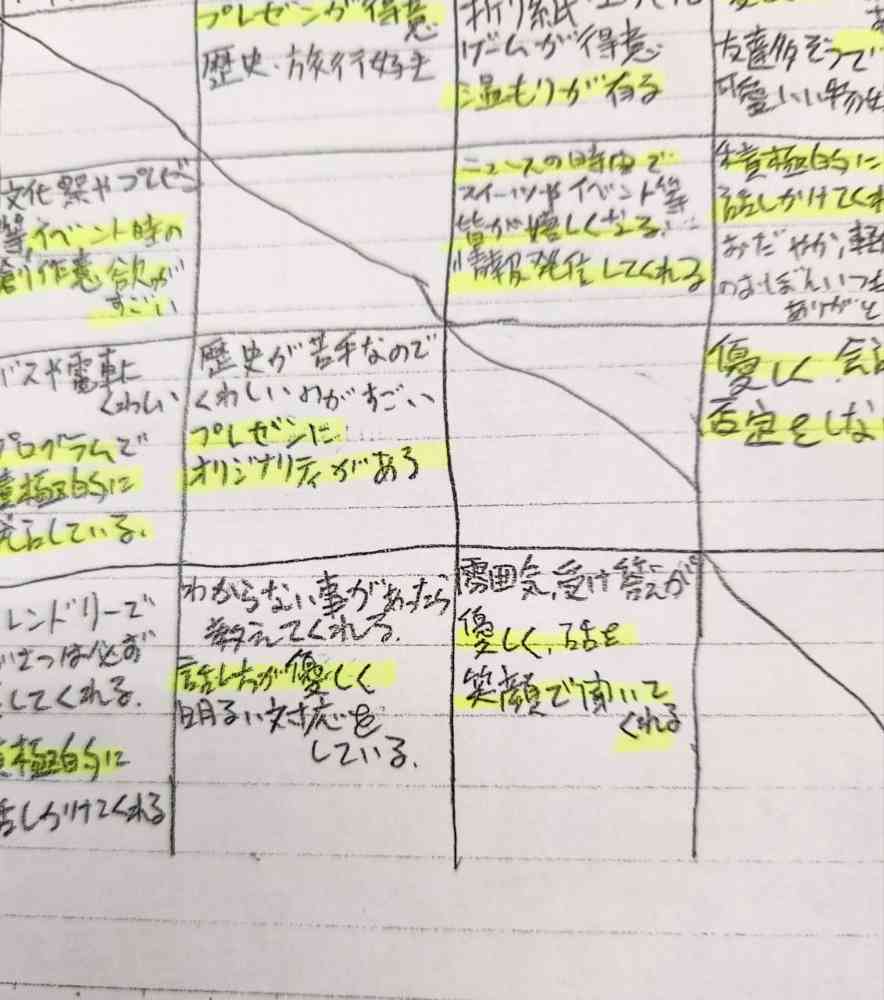 プレゼンが得意
歴史・旅行好き
折り紙
ゲームが得意
温もりが有る
友達多そうで
可愛いい物
文化祭やプレゼン
等、イベント時の
創作意欲が
すごい
ニュースの時間で
スイーツやイベント等
皆が嬉しくなる
情報発信してくれる
積極的に
話しかけてくれ
おだやか、軽
のおぼんいつも
ありがと
バスや電車に
くわしい
プログラムで
積極的に
発言している。
歴史が苦手なので
くわしいのがすごい
プレゼンに
オリジナリティがある
優しく、会話
否定をしな
レンドリーで
いさつは必ず
してくれる。
積極的に
話しかけてくれる
わからない事があったら
教えてくれる。
話し方が優しく
明るい対応を
している。
雰囲気、受け答えが
優しく、話を
笑顔で聞いて
くれる